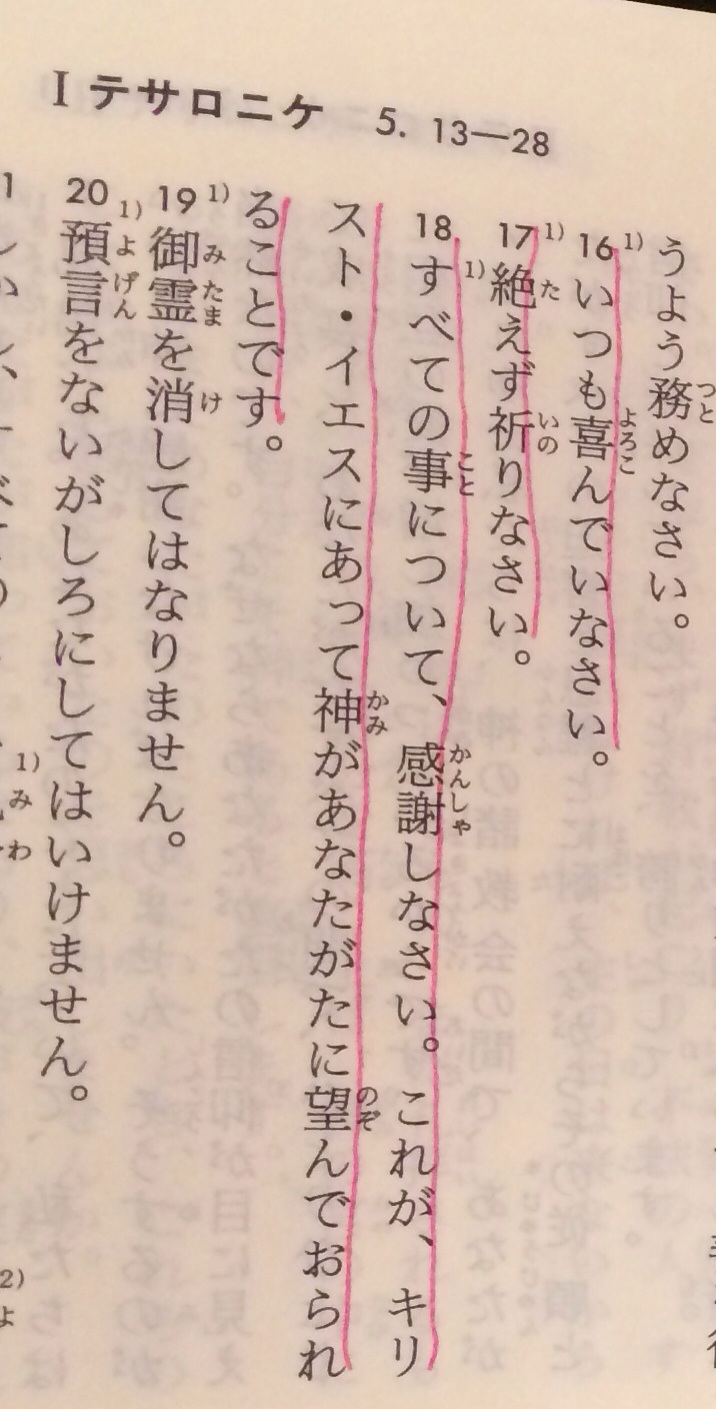 I テサロニケ 5. 13—28
うよう務めなさい。
16 いつも喜んでいなさい。
17 絶えず祈りなさい。
18 すべての事について、感謝しなさい。これが、キリ
スト・イエスにあって神があなたがたに望んでおられ
ることです。
19 御霊を消してはなりません。
20 預言をないがしろにしてはいけません。